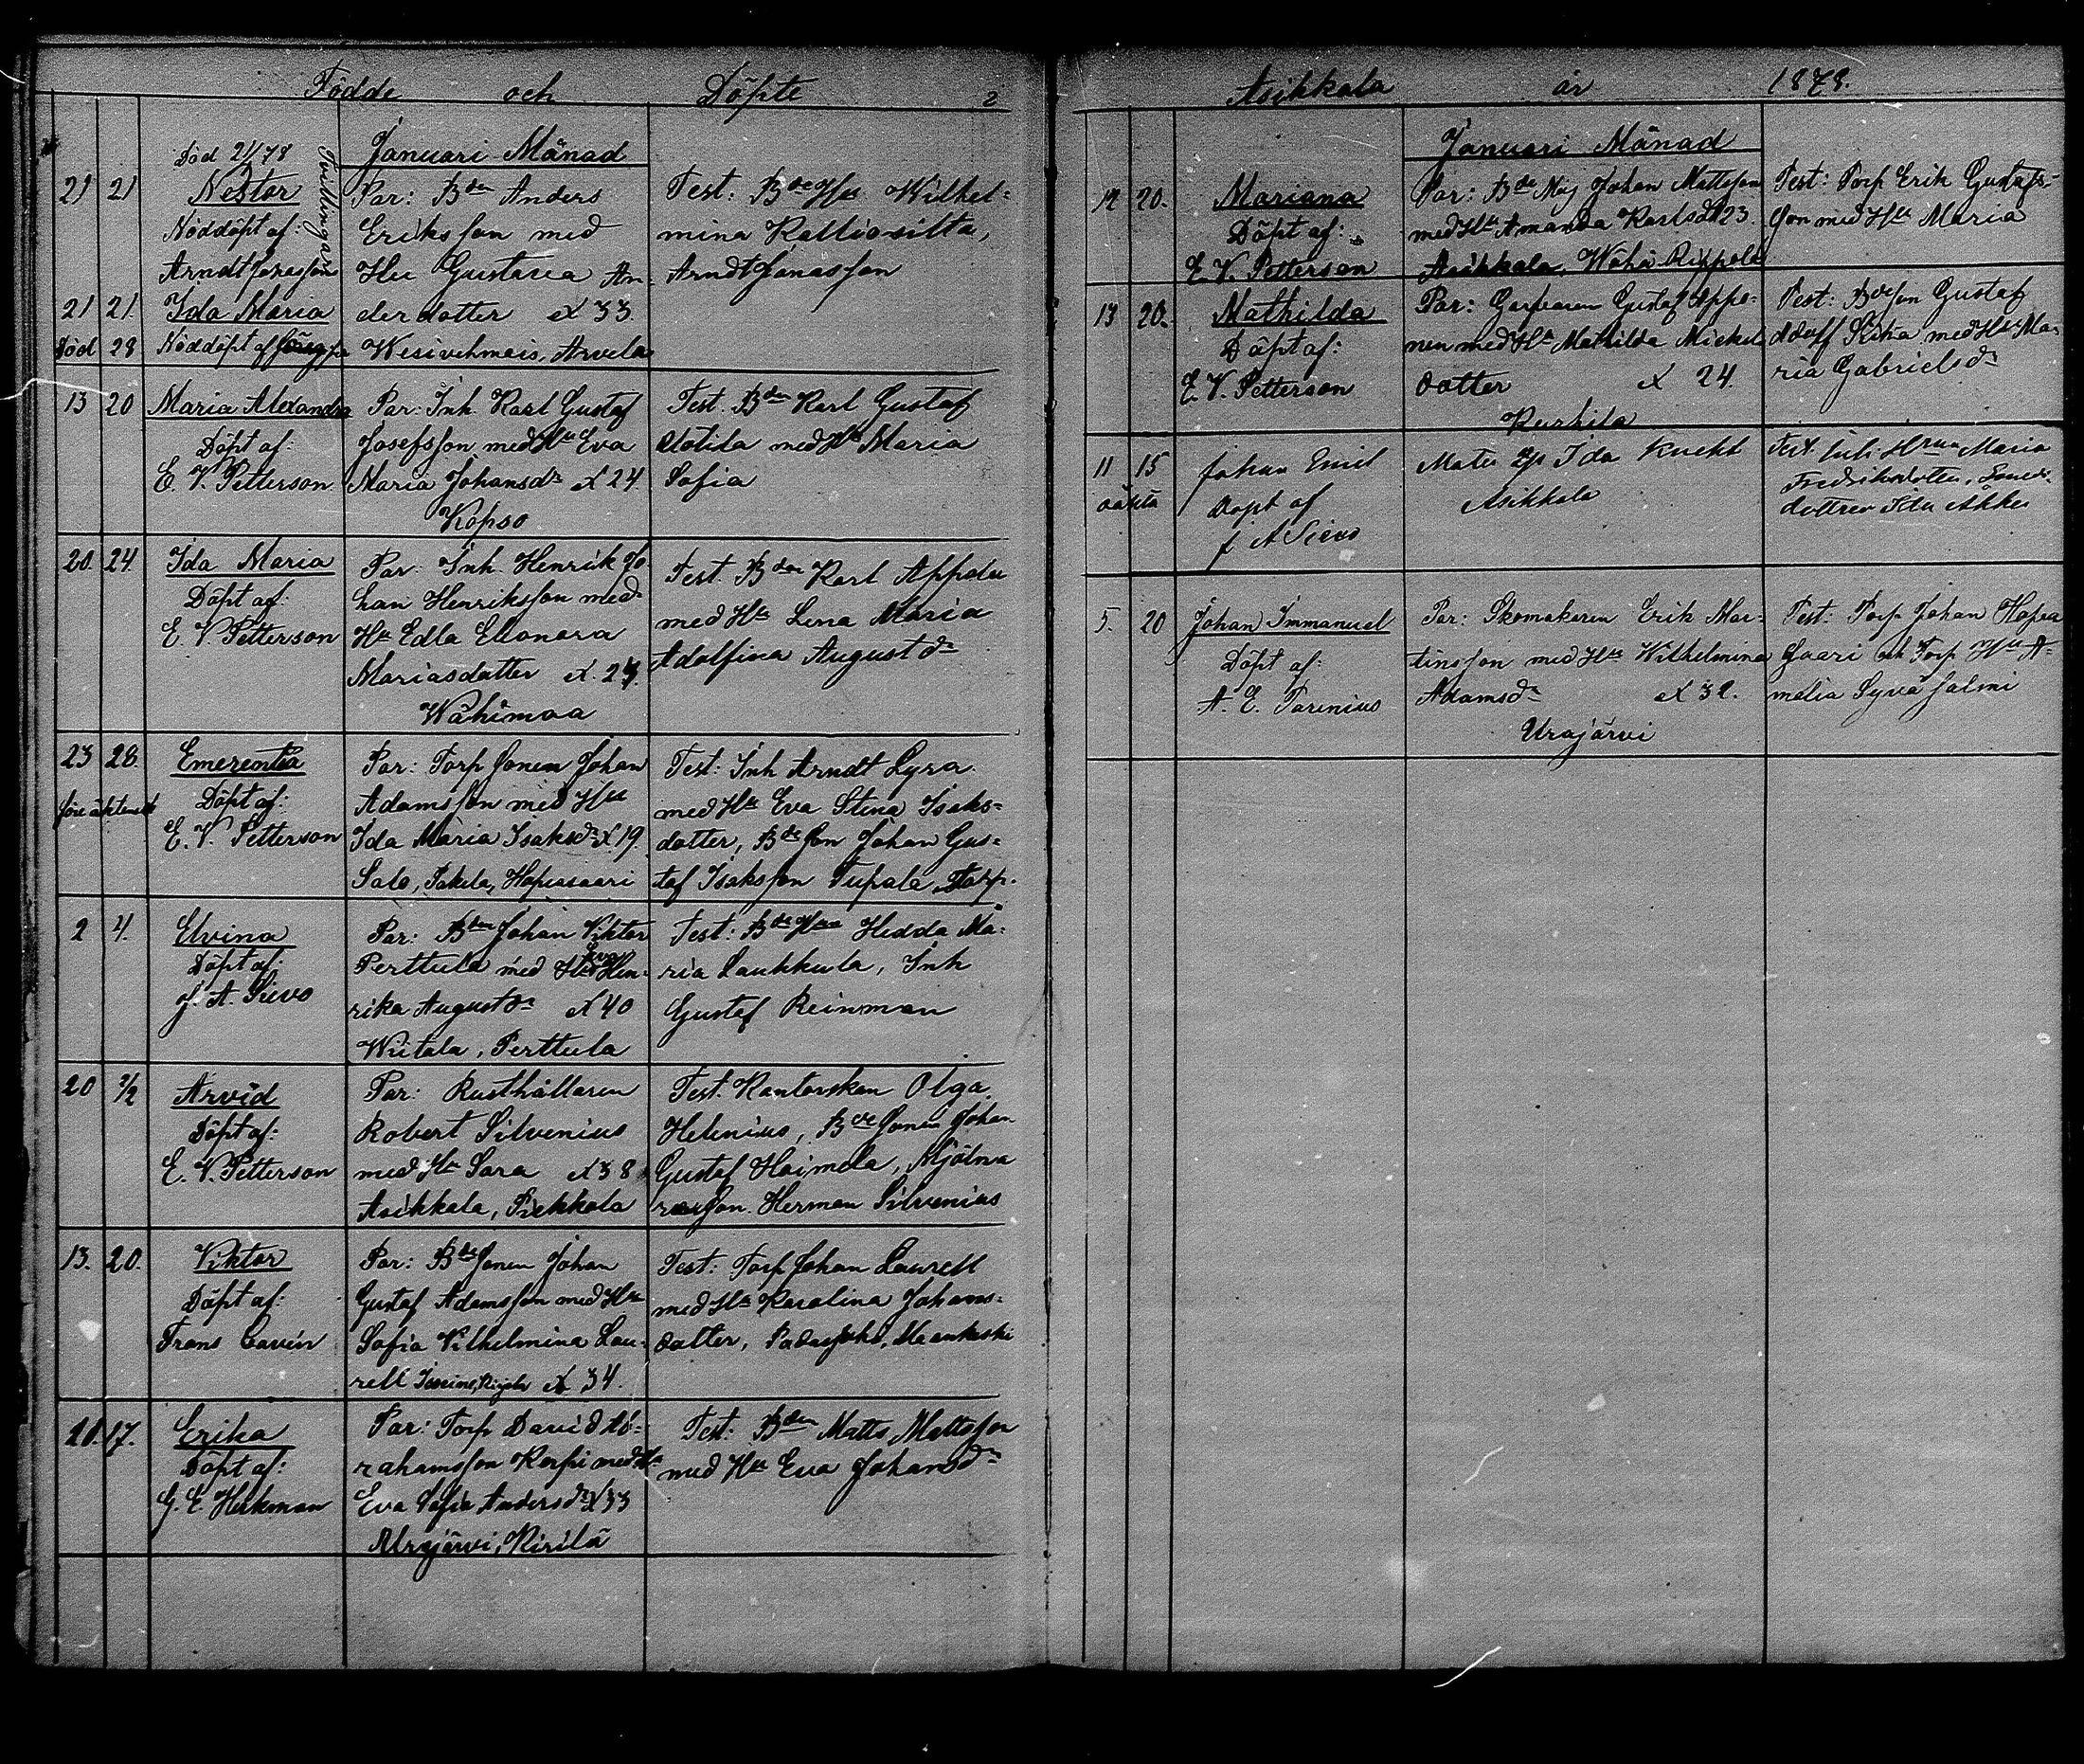 Födde och Döpte 2
Januari Månad
Död 21/78
Tvillingar
21 21 Nestor
Nöddöpt af:
Arndt Jonasson
Par: Bden Anders
Eriksson med
Hu Gustava An-
dersdotter ex 33.
Wesivehmais, Arvela
Test: BdeHu Wilhel-
mina Kalliosilta,
Arndt Jonasson
21 21. Ida Maria
Död 28 Nöddöpt af
13 20 Maria Alexandra
Döpt af:
E. V. Petterson
Par: Inh. Karl Gustaf
Josefsson med Hu Eva
Maria Johansdr ex 24.
Kopso
Test. Bden Karl Gustaf
med Hu Maria
Sofia
20. 24. Ida Maria
Döpt af:
E. V. Petterson
Par: Inh. Henrik Jo
han Henriksson med
Hu Edla Elionora
Mariasdotter ex. 24.
Wähimaa
Test. Bden Karl Appolu
med Hu Lena Maria
Adolfina Augustdr
23 28. Emerentia
före äktensk
Döpt af:
E. V. Petterson
Par: Torp Sonen Johan
Adamsson med Hu
Ida Maria Isaksdr ex 19.
Salo, Pakila, Hapiasaari
Test: Inh Arndt Lyra
med Hu Eva Stina Isaks-
dotter, Bde Son Johan Gus-
taf Isaksson Tupala, Torp.
2 4. Elvina
Döpt af:
J. A. Sievo
Par: Bden Johan Viktor
Perttula med Hu Eva Hen-
rika Augustdr ex 40
Wiitala, Perttula
Test: BdeHu Hedda Ma-
ria Laukkula, Inh
Gustaf Reinman
20 2/2 Arvid
Döpt af:
E. V. Petterson
Par: Rusthållaren
Robert Silvenius
med Hu Sara ex 38
Asikkala, Piekkala
Test. Kantorskan Olga
Helenius, Bde Sonen Johan
Gustaf Haimela, Mjölna
reson Herman Silvenius
13. 20. Viktor
Döpt af:
Frans Cavén
Par: Bde Sonen Johan
Gustaf Adamsson med Hu
Sofia Vilhelmina Lau-
rell ex 34.
Test: Torp Johan Laurell
med Hu Karolina Johans-
dotter, Padasjoki, Maankeski
20. 17. Erika
Döpt af:
G. E Heikman
Par: Torp David Ab-
rahamsson Korpi med Hu
Eva Sofia Andersdr ex 33
Urajärvi, Kirilä
Test: Bden Matts Mattsson
med Hu Eva Johansdr
Asikkala år 1878.
Januari Månad
12 20. Mariana
Döpt af:
E. V. Petterson
Par: Bde Måg Johan Mattsson
med Hu Amanda Karlsdr 23.
Asikkala, Wähä Rippola
Test: Torp Erik Gustafs-
son med Hu Maria
13 20. Mathilda
Döpt af:
E. V. Petterson
Par: Garfvaren Gustaf Oppo-
nen med Hu Mathilda Mickels
dotter ex 24.
Kurhila
Test: Bdeson Gustaf
Adolf Skina med Hu Ma-
ria Gabrielsdr
11 15 Johan Emil
oäkta
Döpt af
J A Sievo
Mater Ida Knekt
Asikkala
Test. Inh Hrun Maria
Fredriksdotter,
dottren Ida
5. 20 Johan Immanuel
Döpt af:
A. E. Parenius
Par: Skomakaren Erik Mar-
tinsson med Hu Wilhelmina
Adamsdr ex 32.
Urajärvi
Test: Torp Johan Hapia
Saari och Torp Hu A-
malia Syväsalmi